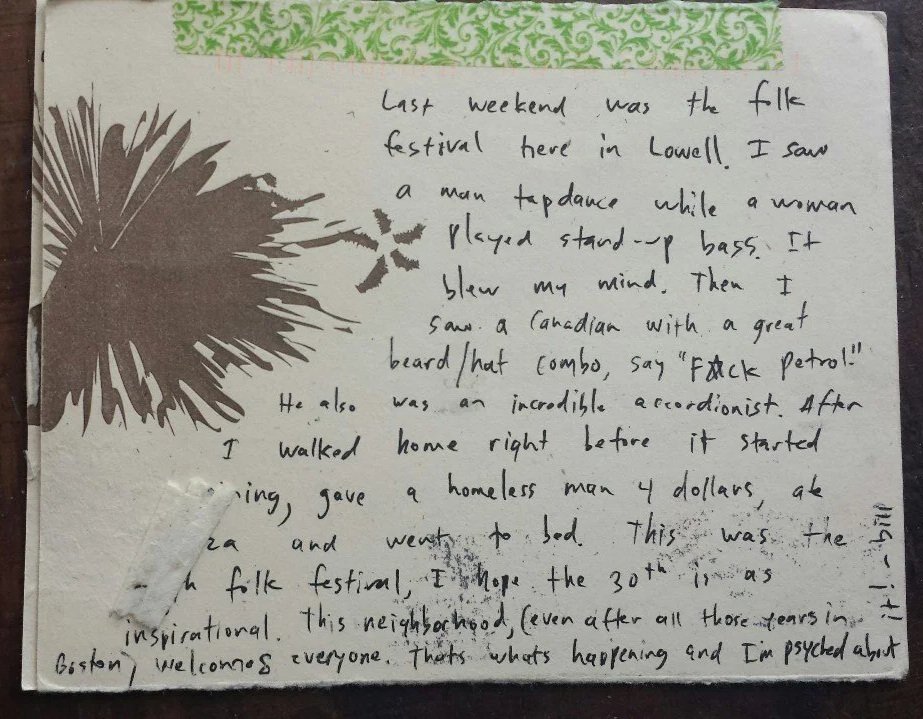 Last weekend was the folk
festival here in Lowell. I saw
a man tapdance while a woman
played stand-up bass. It
blew my mind. Then I
saw a Canadian with a great
beard/hat combo, say "F☆ck petrol!"
He also was an incredible accordionist. After
I walked home right before it started
ining, gave a homeless man 4 dollars, ate
za and went to bed. This was the
h folk festival, I hope the 30th is as
inspirational. This neighborhood, (even after all those years in
Boston) welcomes everyone. Thats whats happening and I'm psyched about
it! - bill